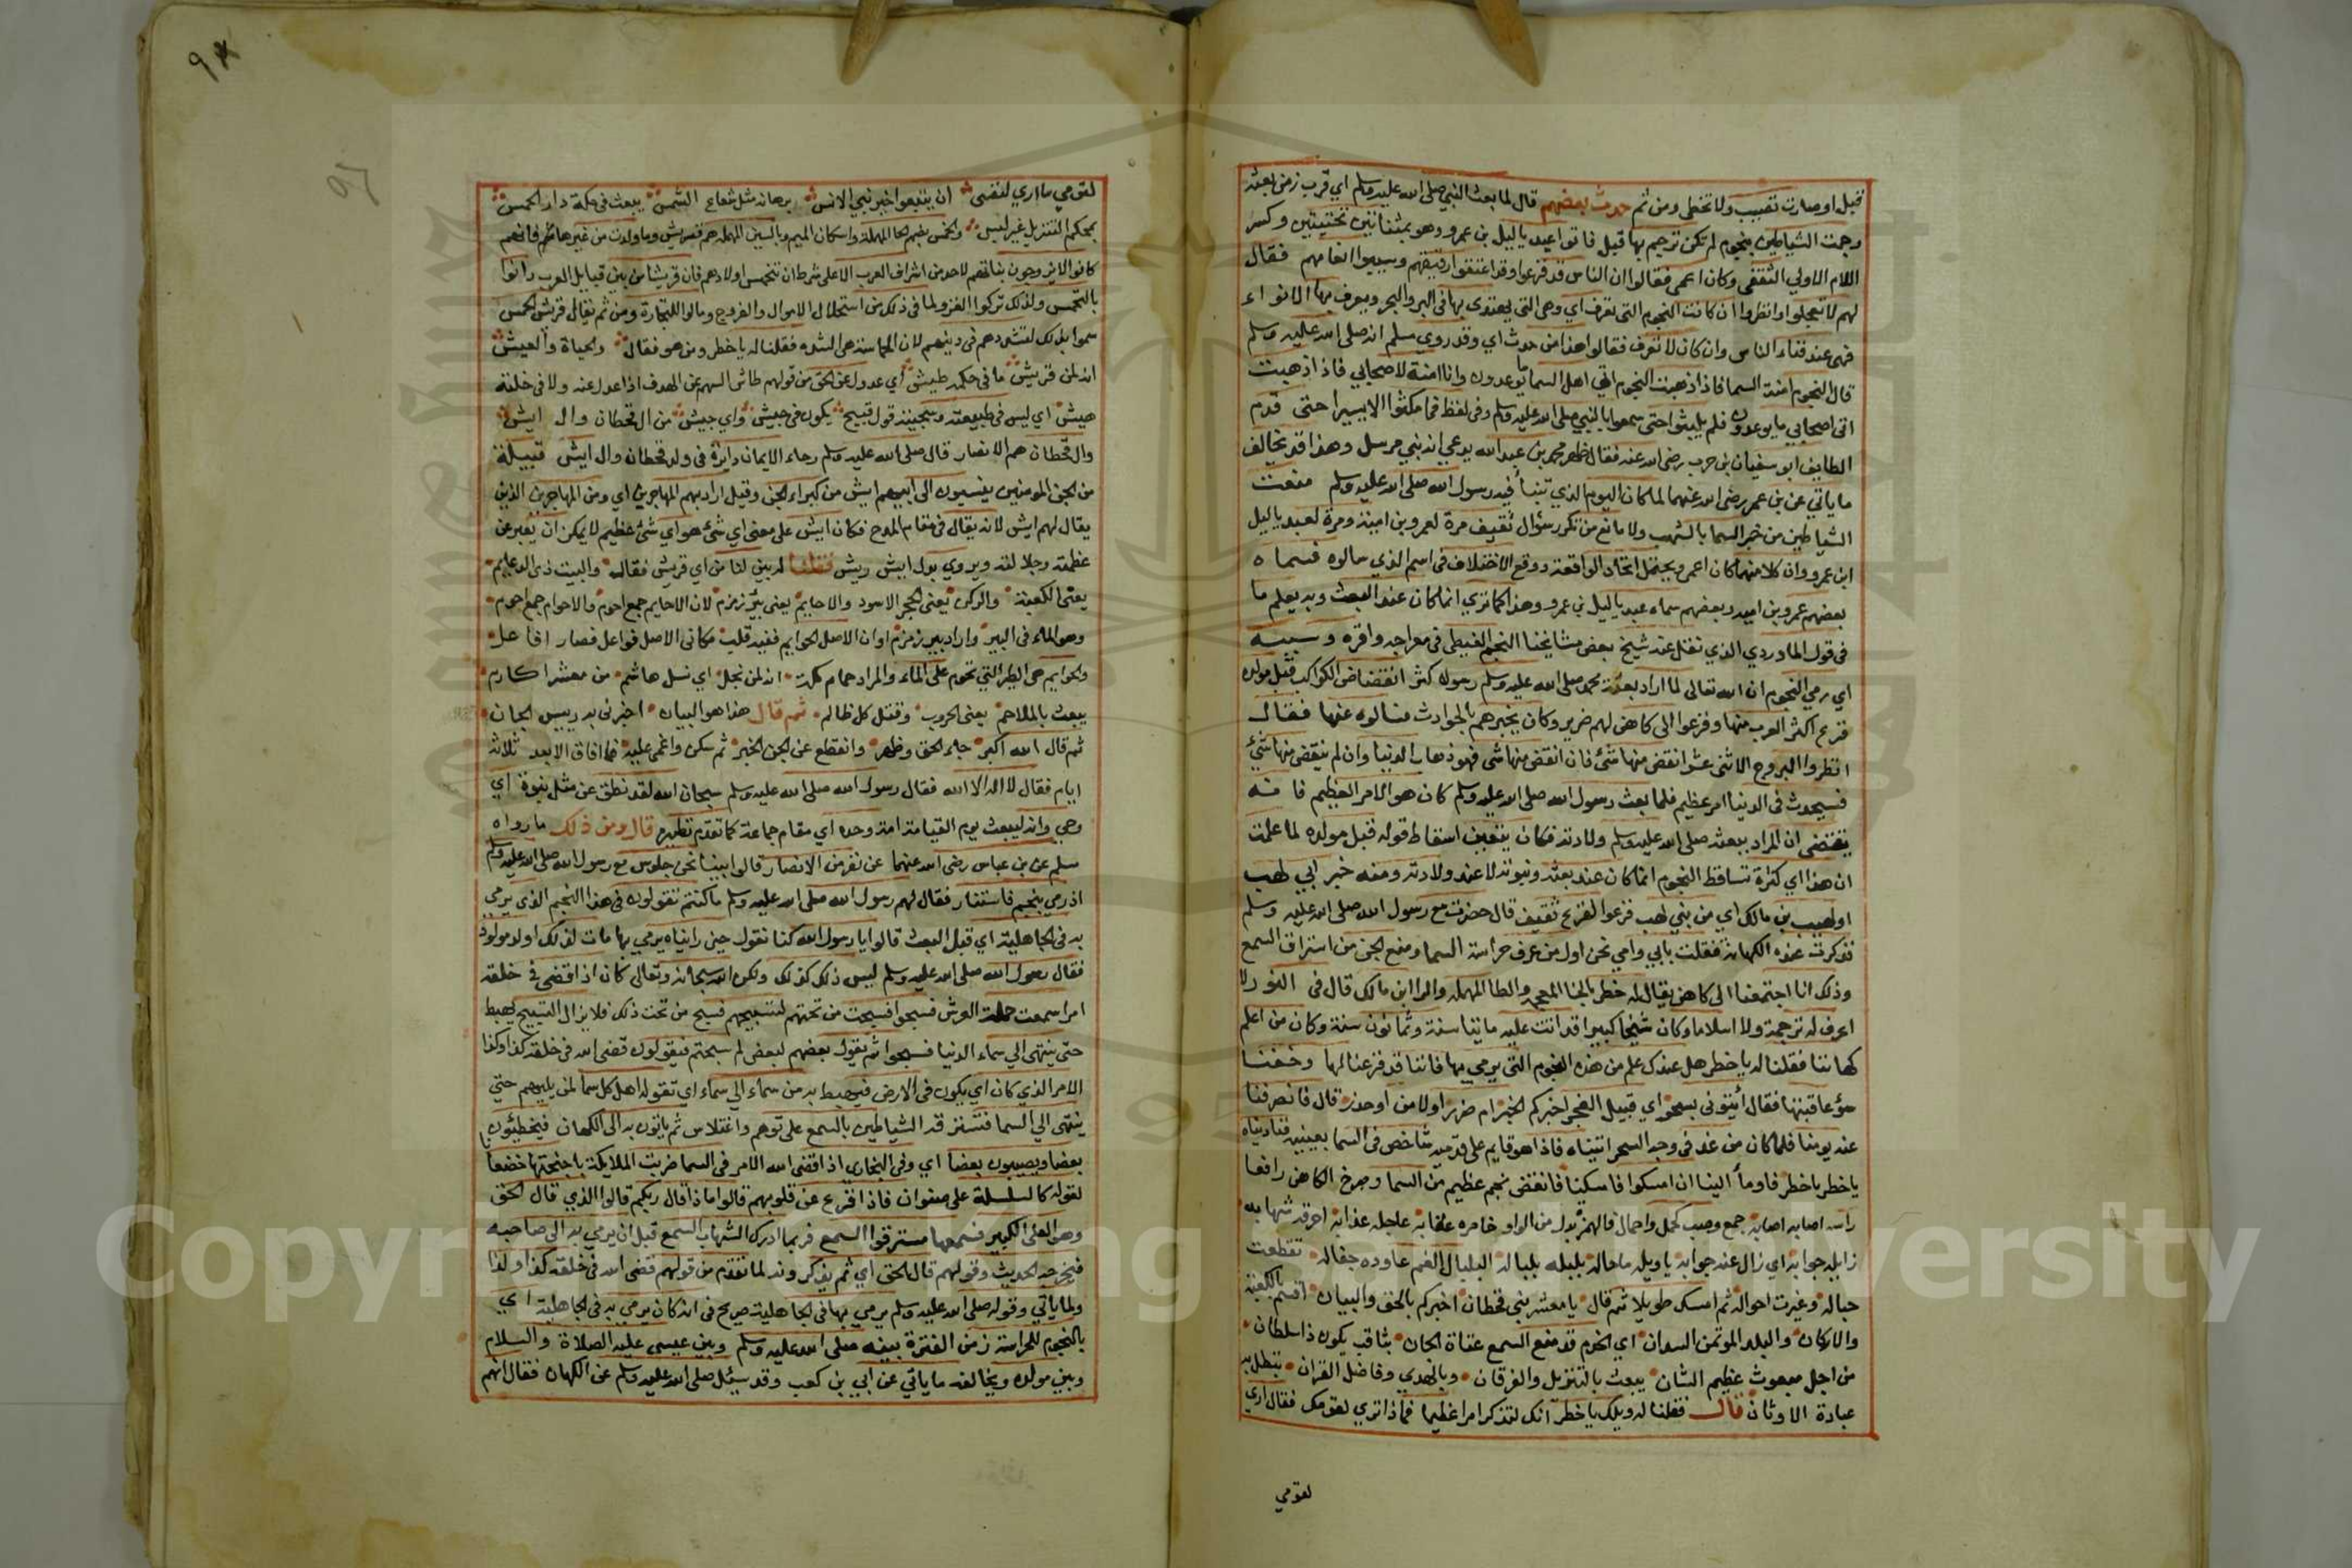 فقيل اوصارت تصيب ولا تخطى ومن ثم حدث بعضهم قال لما بعث النبي صلى الله عليه وسلم اي قرب زمن بعثه
رجمت الشياطين بنجوم لم تكن ترجم بها قبل فاتوا عبد ياليل بن عمرو وهو بمثناتين تحتيتين وكسر
اللام الاولي الثقفى وكان اعمى فقالوا ان الناس قد فزعوا وقد اعتقوا رقيقهم وسيبوا انعامهم فقال
لهم لا تعجلوا وانظروا ان كانت النجوم التى تعرف اي وهى التى يهتدى بها فى البر والبحر ويعرف بها الانواء
فهى عند فناء الناس وان كان لا تعرف فقالوا هذا من حدث اي وقد روي مسلم انه صلى الله عليه وسلم
قال النجوم امنة السما فاذا ذهبت النجوم اتي اهل السما ما توعدون وانا امنة لاصحابي فاذا ذهبت
اتى اصحابي ما يوعدون فلم يلبثوا حتى سمعوا بالنبي صلى الله عليه وسلم وفى لفظ فما مكثوا الا يسيرا حتى قدم
الطايف ابو سفيان بن حرب رضى الله عنه فقال ظهر محمد بن عبد الله يدعي انه نبي مرسل وهذا قد يخالف
ما ياتي عن بن عمر رضى الله عنهما لما كان اليوم الذي تنبأ فيه رسول الله صلى الله عليه وسلم منعت
الشياطين من خبر السما بالشهب ولا مانع من تكرر سؤال ثقيف مرة لعمرو بن امية ومرة لعبد ياليل
ابن عمرو وان كلا منهما كان اعمى ويحتمل اتحاد الواقعة ووقع الاختلاف فى اسم الذي سالوه فسماه
بعضهم عمرو بن امية وبعضهم سماه عبد ياليل بن عمرو وهذا كما تري انما كان عند البعث وبه يعلم ما
فى قول الماوردي الذي نقل عنه شيخ بعض مشايخنا النجم الغيطى فى معراجه واقره وسببه
اي رمي النجوم ان الله تعالى لما اراد بعثة محمد صلى الله عليه وسلم رسوله كثر انقضاض الكواكب قبل مولده
فزع اكثر العرب منها وفزعوا الى كاهن لهم ضرير وكان يخبرهم بالحوادث فسالوه عنها فقال
انظروا البروج الاثنى عشر انقض منها شئ فان انقض منها شى فهو ذهاب الدنيا وان لم ينقض منها شئ
فسيحدث فى الدنيا امر عظيم فلما بعث رسول الله صلى الله عليه وسلم كان هو الامر العظيم فانه
يقتضى ان المراد ببعثه صلى الله عليه وسلم ولادته فكان يتعين اسقاط قوله قبل مولده لما علمت
ان هذا اي كثرة تساقط النجوم انما كان عند بعثه ونبوته لا عند ولادته ومنه خبر ابي لهب
او لهيب بن مالك اي من بني لهب فزعوا لفزع ثقيف قال حضرت مع رسول الله صلى الله عليه وسلم
فذكرت عنده الكهانة فقلت بابي وامي نحن اول من عرف حراسة السما ومنع الجن من استراق السمع
وذلك انا اجتمعنا الى كاهن يقال له خطر بالخا المعجمة والطا المهملة والرا ابن مالك قال فى النور لا
اعرف له ترجمة ولا اسلاما وكان شيخا كبيرا قد اتت عليه مايتا سنة وثمانون سنة وكان من اعلم
كهاننا فقلنا له يا خطر هل عندك علم من هذه النجوم التى يرمي بها فاننا قد فزعنا لها وخفنا
سوء عاقبتها فقال ائتوني بسحر اي قبيل الفجر اخبركم الخبر ام ضرر اولامن او حذر قال فانصرفنا
عنه يومنا فلما كان من غد فى وجه السحر اتيناه فاذا هو قايم على قدميه شاخص فى السما بعينيه فناديناه
يا خطر يا خطر فاومأ الينا ان امسكوا فامسكنا فانقض نجم عظيم من السما وصرخ الكاهن رافعا
راسه اصابه اصابه جمع وصب كجمل واجمال فالهمزة بدل من الواو خامره عقابه عاجله عذابه احرقه شهابه
زايله جوابه اي زال عنه جوابه يا ويله ما حاله بلبله بلباله البلبال الغم عاوده جفاله تقطعت
حباله وغيرت احواله ثم امسك طويلا ثم قال يا معشر بني قحطان اخبركم بالحق والبيان اقسم بالكعبة
والاركان والبلد الموتمن السدان اي الخدم قد منع السمع عتاة الجان بثاقب يكون ذا سلطان
من اجل مبعوث عظيم الشان يبعث بالتنزيل والفرقان وبالهدي وفاضل القران تبطل به
عبادة الاوثان قال فقلنا له ويلك يا خطر انك لتذكر امرا عظيما فماذا تري لقومك فقال اري
لقومي
9
لقومي ما اري لنفسي ان يتبعوا خير نبي الانس برهانه مثل شعاع الشمس يبعث فى مكة دار الحمس
بمحكم التنزيل غير اللبس والحمس بضم الحا المهملة واسكان الميم وبالسين المهملة هم قريش وما ولدت من غيرها فانهم
كانوا لا يزوجون بناتهم لاحد من اشراف العرب الا على شرط ان تتحمس اولادهم فان قريشا من بين قبايل العرب دانوا
بالتحمس ولذلك تركوا الغزو لما فى ذلك من استحلال الاموال والفروج ومالوا للتجارة ومن ثم يقال قريش الحمس
سموا بذلك لتشددهم فى دينهم لان الحماسة هى الشدة فقلنا له يا خطر وممن هو فقال والحياة والعيش
انه لمن قريش ما فى حكمه طيش اي عدول عن الحق من قولهم طاش السهم عن الهدف اذا عدل عنه ولا فى خلقه
هيش اي ليس فى طبيعته وسجيته قول قبيح يكون فى جيش واي جيش من ال قحطان وال ايش
وال قحطان هم الانصار قال صلى الله عليه وسلم رحاء الايمان دايرة فى ولد قحطان وال ايش قبيلة
من الجن المومنين ينسبون الى ابيهم ايش من كبراء الجن وقيل اراد بهم المهاجرين اي ومن المهاجرين الذين
يقال لهم ايش لانه يقال فى مقام المدح فكان ايش على معنى اي شئ هو اي شئ عظيم لا يمكن ان يعبر عن
عظمته وجلالته ويروي بدل ايش ريش فقلنا له بين لنا من اي قريش فقال والبيت ذى الدعايم
يعنى الكعبة والركن يعنى الحجر الاسود والاحايم يعنى بئر زمزم لان الاحايم جمع احوم والاحوام جمع احوم
وهو الماء فى البير واراد بير زمزم او ان الاصل الحوايم ففيه قلب مكانى الاصل فواعل فصار افاعل
والحوايم هى الطير التى تحوم على الماء والمراد حمام مكة انه لمن نجل اي نسل هاشم من معشر اكارم
يبعث بالملاحم يعنى الحروب وقتل كل ظالم ثم قال هذا هو البيان اخبرنى به رييس الجان
ثم قال الله اكبر جاء الحق وظهر وانقطع عن الجن الخبر ثم سكن واغمى عليه فما افاق الا بعد ثلاثة
ايام فقال لا اله الا الله فقال رسول الله صلى الله عليه وسلم سبحان الله لقد نطق عن مثل نبوة اي
وحي وانه ليبعث يوم القيامة امة وحده اي مقام جماعة كما تقدم نظيره قال ومن ذلك ما رواه
مسلم عن بن عباس رضى الله عنهما عن نفر من الانصار قالوا بينا نحن جلوس مع رسول الله صلى الله عليه وسلم
اذ رمي بنجم فاستنار فقال لهم رسول الله صلى الله عليه وسلم ما كنتم تقولون فى هذا النجم الذى يرمي
به فى الجاهلية اي قبل البعث قالوا يا رسول الله كنا نقول حين رايناه يرمي بها مات لذلك او لد مولود
فقال رسول الله صلى الله عليه وسلم ليس ذلك كذلك ولكن الله سبحانه وتعالى كان اذا قضى فى خلقه
امرا سمعت حملة العرش فسبحوا فسبحت من تحتهم لتسبيحهم فسبح من تحت ذلك فلا يزال التسبيح يهبط
حتى ينتهى الي سماء الدنيا فسبحوا ثم يقول بعضهم لبعض لم سبحتم فيقولون قضى الله فى خلقه كذا وكذا
الامر الذي كان اي يكون فى الارض فيهبط به من سماء الي سماء اي تقوله اهل كل سما لمن يليهم حتي
ينتهى الي السما فتسترقه الشياطين بالسمع على توهم واختلاس ثم ياتون به الى الكهان فيخطئون
بعضا ويصيبون بعضا اي وفى البخاري اذا قضى الله الامر فى السما ضربت الملايكة باجنحتها خضعا
لقوله كالسلسلة على صفوان فاذا فزع عن قلوبهم قالوا ماذا قال ربكم قالوا الذي قال الحق
وهو العلى الكبير فسمعها مسترقوا السمع فربما ادرك الشهاب السمع قبل ان يرمي به الى صاحبه
فيحرقه الحديث وقولهم قال الحق اي ثم يذكرونه لما تقدم من قولهم قضى الله فى خلقه كذا وكذا
ولما ياتي وقوله صلى الله عليه وسلم يرمي بها فى الجاهلية صريح فى انه كان يرمي به فى الجاهلية اي
بالنجوم للحراسة زمن الفترة بينه صلى الله عليه وسلم وبين عيسى عليه الصلاة والسلام
وبين مولده ويخالفه ما ياتي عن ابي بن كعب وقد سئل صلى الله عليه وسلم عن الكهان فقال انهم
Copyright © King Saud University